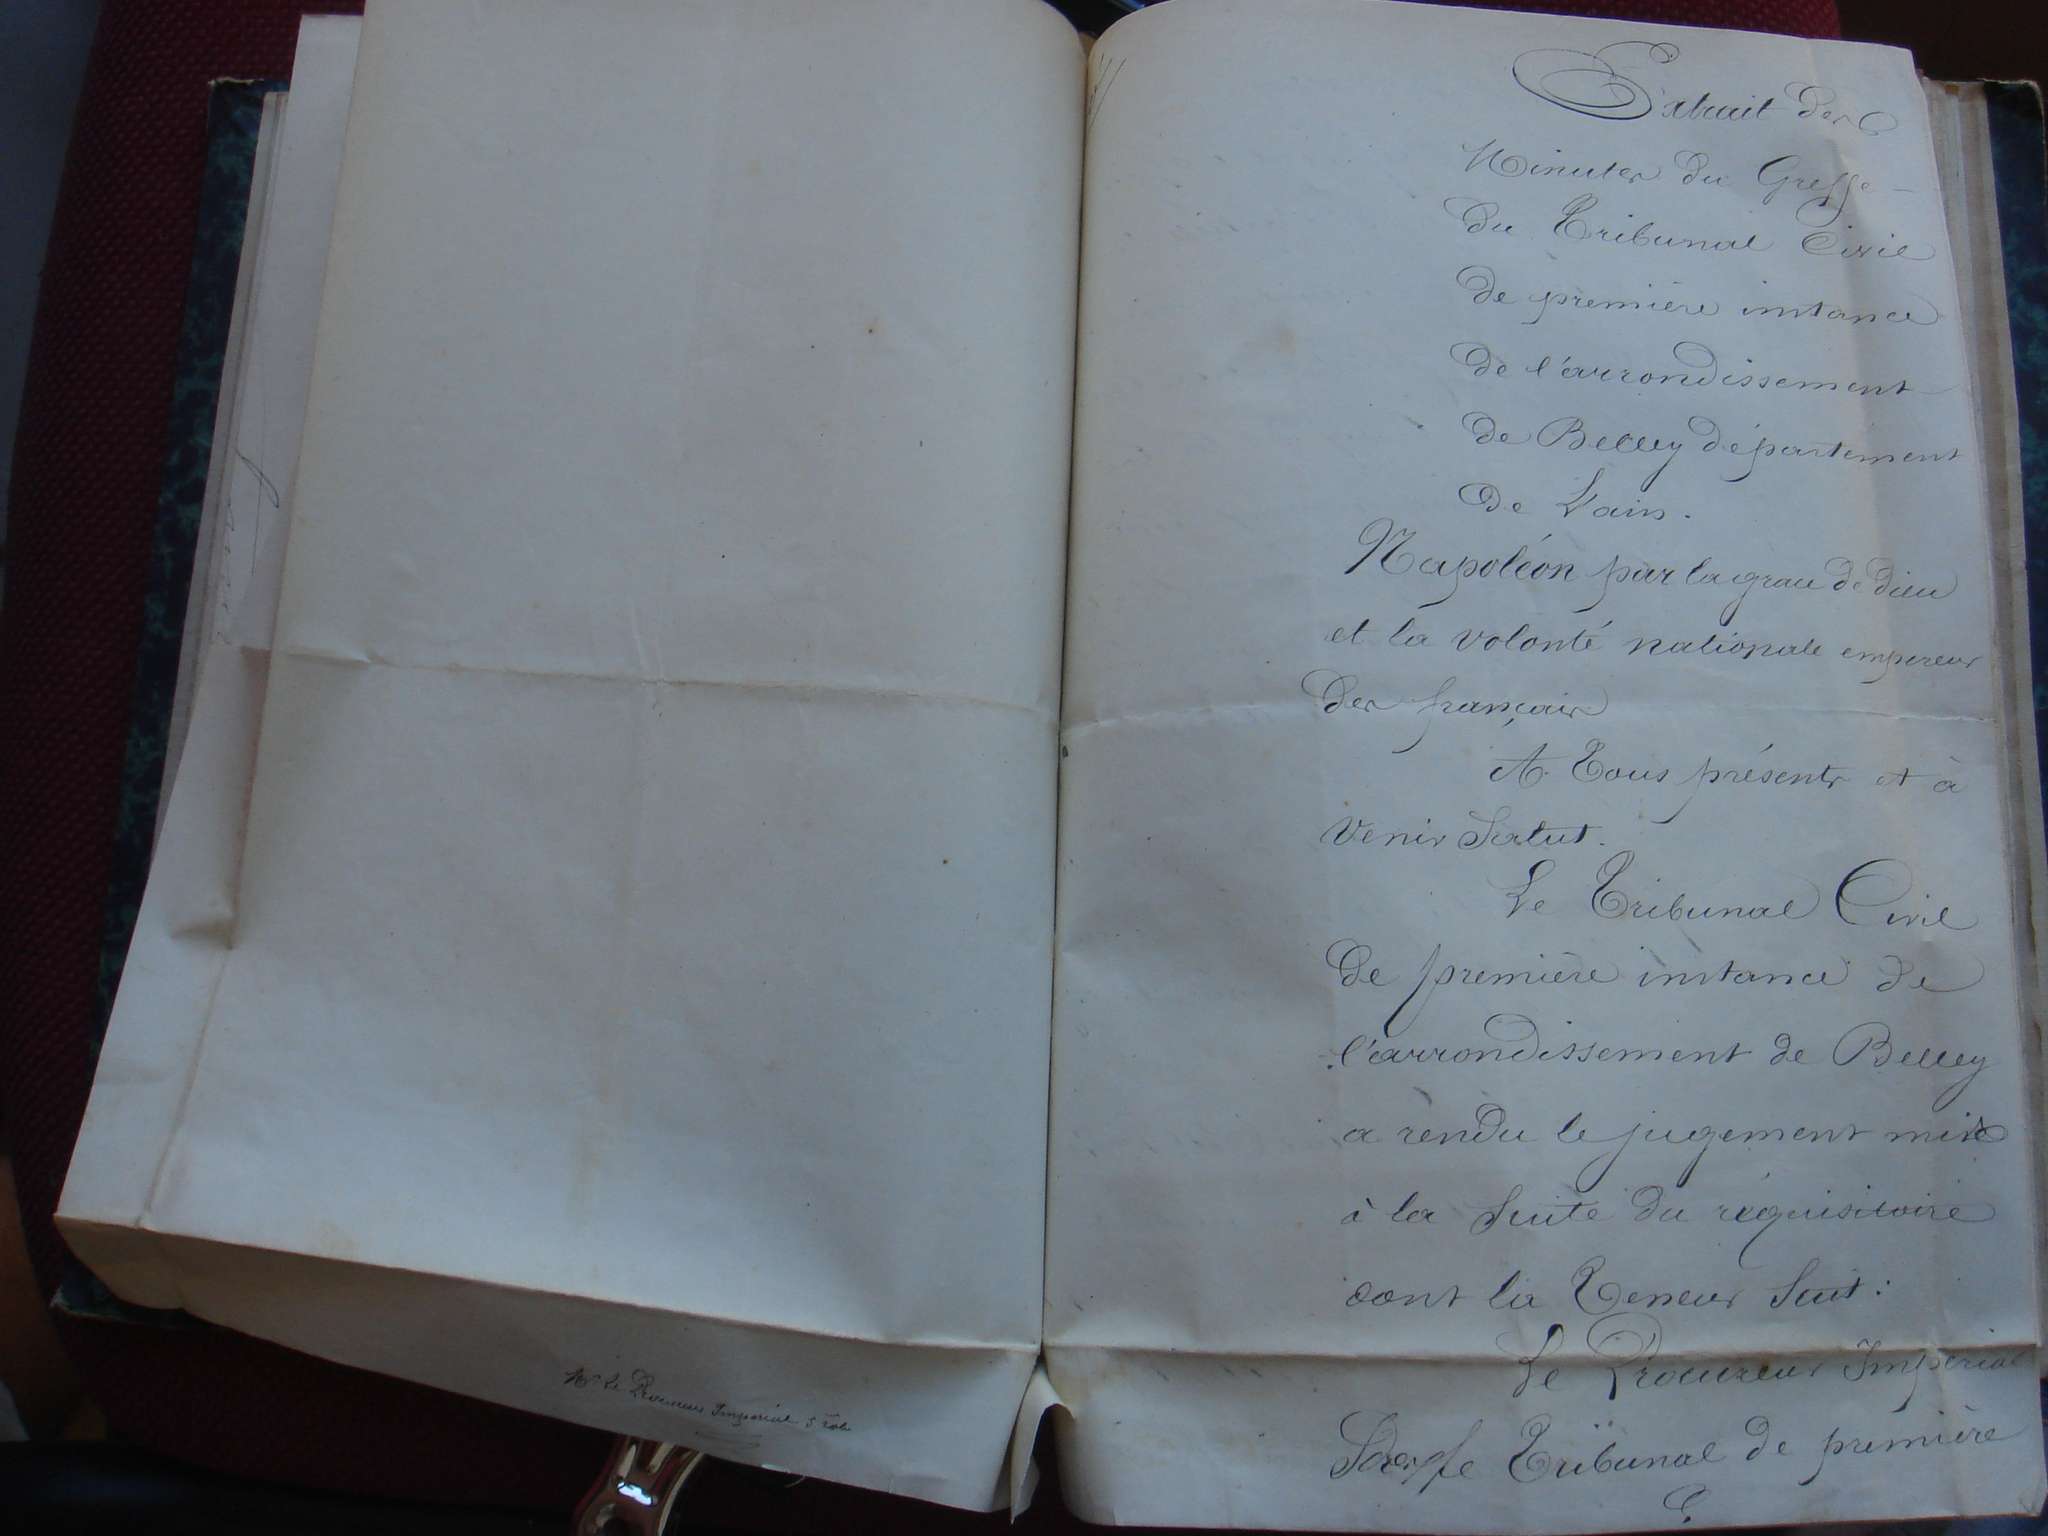 Mr Le Procureur Impérial 5 role
Extrait des
Minutes du Greffe
du Tribunal Civil
de première instance
de l'arrondissement
de Belley département
de L'ain.
Napoléon par la grace de dieu
et la volonté nationale empereur
des français
A Tous présents et à
venir Salut.
Le Tribunal Civil
de première instance de
l'arrondissement de Belley
a rendu le jugement mis
à la Suite du réquisitoire
dont la Teneur Suit :
Le Procureur Impérial
Tribunal de première